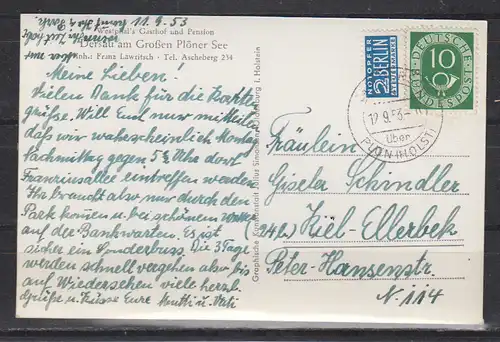 11.9.53
Westphal's Gasthof und Pension
Dersau am Großen Plöner See
Inh.: Franz Lawritsch · Tel. Ascheberg 234
Meine Lieben!
Vielen Dank für die Karten
grüße. Will Euch nur mitteilen
daß wir wahrscheinlich Montag
Nachmittag gegen 5 Uhr dort
eintreffen werden
Ihr braucht also nur durch den
Park kommen u. bei schönem Wetter
auf der Bank warten. Es ist
sicher ein Sonderbuss. Die 3 Tage
werden schnell vergehen also bis
auf Wiedersehen viele herzl.
Grüße u. Küsse Eure Mutti u. Vati
Graphische Kunstanstalt Julius Simonsen, Oldenburg i. Holstein
NOTOPFER
2 BERLIN
STEUERMARKE
DEUTSCHE
BUNDESPOST
10
12.9.53
über
PLÖN (HOLST)
Fräulein
Gisela Schindler
(24b) Kiel-Ellerbek
Peter-Hansenstr.
N. 114